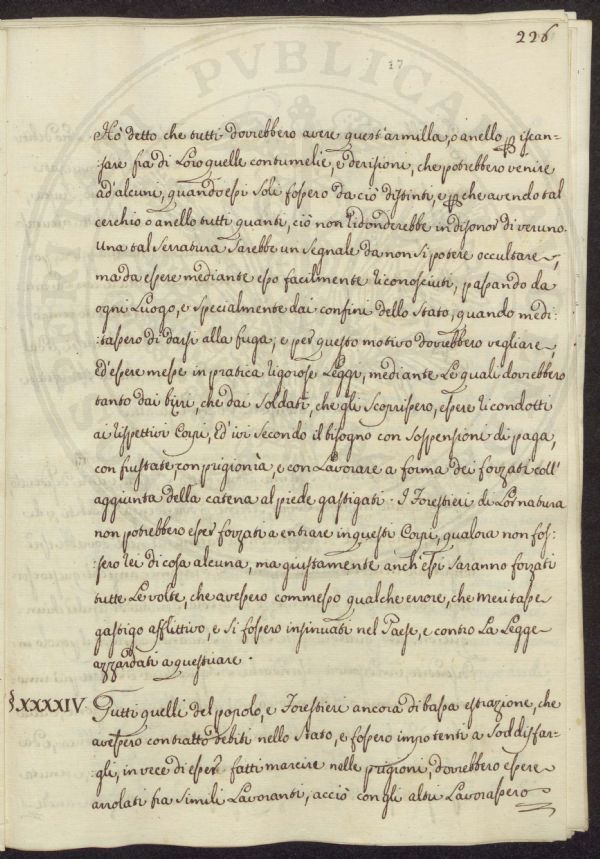 226
17
Hò detto che tutti dovrebbero avere quest'armilla, o anello p iscan=
=sare fra di Loro quelle contumelie, e derisione, che potrebbero venire
ad'alcuni, quando essi soli fossero da ciò distinti, e p che avendo tal
cerchio o anello tutti quanti, ciò non ridonderebbe in disonor di veruno.
Una tal Serratura Sarebbe un Segnale da non Si potere occultare,
ma da essere mediante esso facilmente riconosciuti, passando da
ogni Luogo, e specialmente dai confini dello Stato, quando medi:
:tassero di darsi alla fuga; e per questo motivo dovrebbero vegliare,
ed'essere messe in pratica rigorose Leggi, mediante Le quali dovrebbero
tanto dai birri, che dai Soldati, che gli Scoprissero, essere ricondotti
ai rispettivi Corpi, ed' ivi Secondo il bisogno con Sospensioni di paga,
con frustate, con prigionìa, e con Lavorare a forma dei forzati coll'
aggiunta della catena al piede gastigati. I Forestieri di Lor natura
non potrebbero esser forzati a entrare in questi Corpi, qualora non fos:
:sero rei di cosa alcuna, ma giustamente anch'essi Saranno forzati
tutte Le volte, che avessero commesso qualche errore, che meritasse
gastigo afflittivo, e Si fossero insinuati nel Paese, e contro La Legge
azzardati a questuare.
§.XXXXIV Tutti quelli del popolo, e Forestieri ancora di bassa estrazione, che
avessero contratto debiti nello Stato, e fossero impotenti a Soddisfar=
=gli, in vece di esser fatti marcire nelle prigioni, dovrebbero essere
arrolati fra Simili Lavoranti, acciò con gli altri Lavorassero
PVBLICA